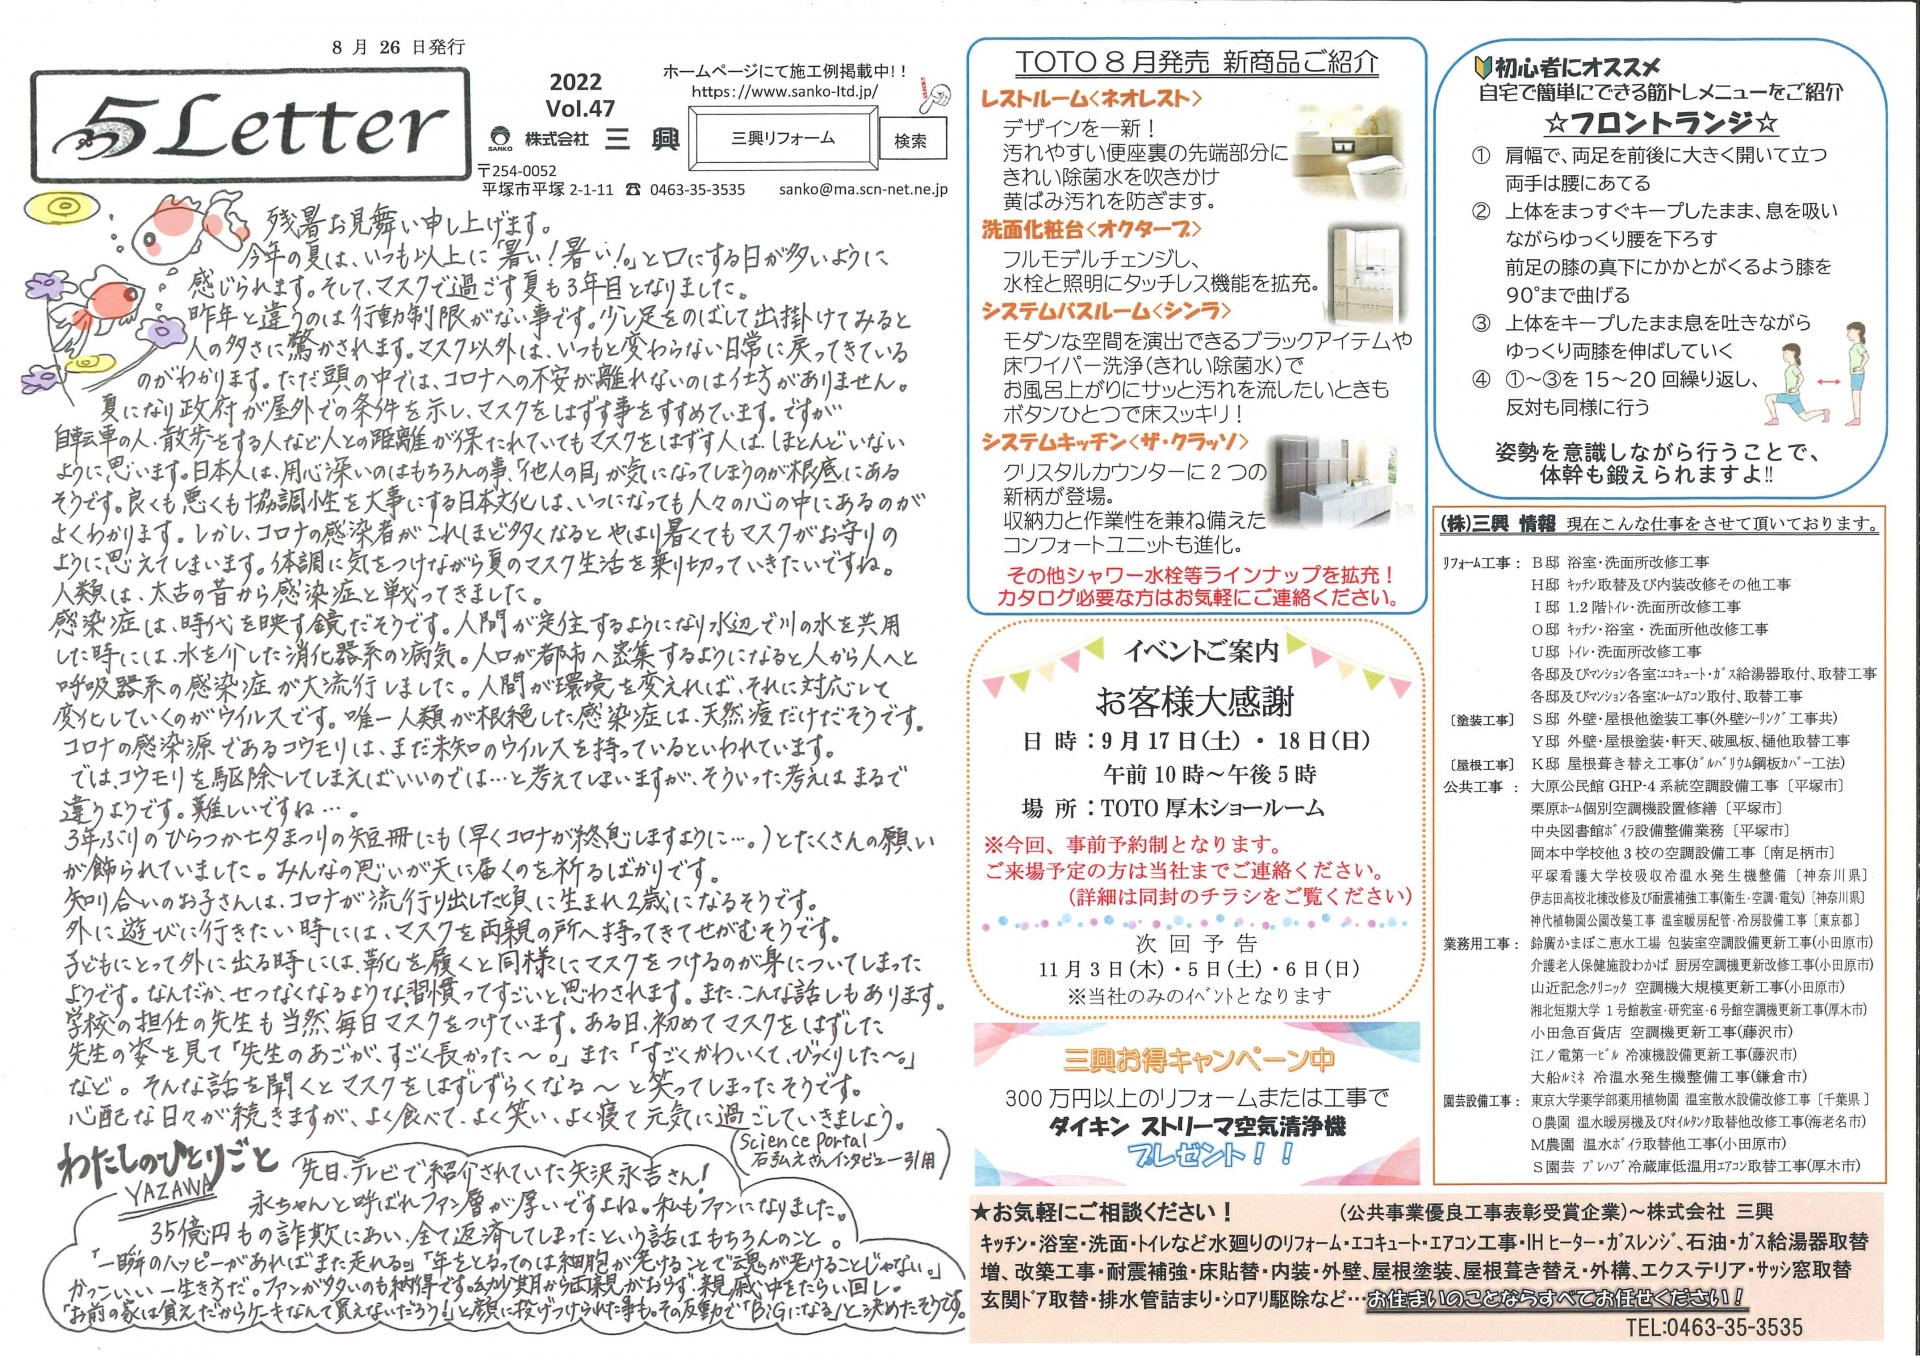 8 月 26 日発行
5 Letter
2022
Vol.47
ホームページにて施工例掲載中!!
https://www.sanko-ltd.jp/
SANKO 株式会社 三 興
三興リフォーム
検索
〒254-0052
平塚市平塚 2-1-11 ☎ 0463-35-3535 sanko@ma.scn-net.ne.jp
残暑お見舞い申し上げます。
今年の夏は、いつも以上に「暑い!暑い!。」と口にする日が多いように
感じられます。そして、マスクで過ごす夏も3年目となりました。
昨年と違うのは行動制限がない事です。少し足をのばして出掛けてみると
人の多さに驚かされます。マスク以外は、いつもと変わらない日常に戻ってきている
のがわかります。ただ頭の中では、コロナへの不安が離れないのは仕方がありません。
夏になり政府が屋外での条件を示し、マスクをはずす事をすすめています。ですが
自転車の人、散歩をする人など人との距離が保たれていてもマスクをはずす人は、ほとんどいない
ように思います。日本人は、用心深いのはもちろんの事、「他人の目」が気になってしまうのが根底にある
そうです。良くも悪くも協調性を大事にする日本文化は、いつになっても人々の心の中にあるのが
よくわかります。しかし、コロナの感染者がこれほど多くなるとやはり暑くてもマスクがお守りの
ように思えてしまいます。体調に気をつけながら夏のマスク生活を乗り切っていきたいですね。
人類は、太古の昔から感染症と戦ってきました。
感染症は、時代を映す鏡だそうです。人間が定住するようになり水辺で川の水を共用
した時には、水を介した消化器系の病気。人口が都市へ密集するようになると人から人へと
呼吸器系の感染症が大流行しました。人間が環境を変えれば、それに対応して
変化していくのがウイルスです。唯一人類が根絶した感染症は、天然痘だけだそうです。
コロナの感染源であるコウモリは、まだ未知のウイルスを持っているといわれています。
では、コウモリを駆除してしまえばいいのでは…と考えてしまいますが、そういった考えはまるで
違うようです。難しいですね…。
3年ぶりのひらつか七夕まつりの短冊にも(早くコロナが終息しますように…。)とたくさんの願い
が飾られていました。みんなの思いが天に届くのを祈るばかりです。
知り合いのお子さんは、コロナが流行り出した頃に生まれ2歳になるそうです。
外に遊びに行きたい時には、マスクを両親の所へ持ってきてせがむそうです。
子どもにとって外に出る時には、靴を履くと同様にマスクをつけるのが身についてしまった
ようです。なんだか、せつなくなるような習慣ってすごいと思わされます。また、こんな話しもあります。
学校の担任の先生も当然、毎日マスクをつけています。ある日、初めてマスクをはずした
先生の姿を見て「先生のあごが、すごく長かった～。」また「すごくかわいくて、びっくりした～。」
など。そんな話を聞くとマスクをはずしずらくなる～と笑ってしまったそうです。
心配な日々が続きますが、よく食べて、よく笑い、よく寝て元気に過ごしていきましょう。
(Science Portal
石弘之さんインタビュー引用)
わたしのひとりごと
YAZAWA
先日、テレビで紹介されていた矢沢永吉さん!
永ちゃんと呼ばれファン層が厚いですよね。私もファンになりました。
35億円もの詐欺にあい、全て返済してしまったという話はもちろんのこと。
「一瞬のハッピーがあればまた走れる。」「年をとるってのは細胞が老けることで魂が老けることじゃない。」
かっこいいー生き方だ。ファンが多いのも納得です。幼少期から両親がおらず、親戚中をたらい回し。
「お前の家は貧乏だからケーキなんて買えないだろう!」と顔に投げつけられた事も。その反動で「BiGになる」と決めたそうです。
TOTO 8 月発売 新商品ご紹介
レストルーム<ネオレスト>
デザインを一新!
汚れやすい便座裏の先端部分に
きれい除菌水を吹きかけ
黄ばみ汚れを防ぎます。
洗面化粧台<オクターブ>
フルモデルチェンジし、
水栓と照明にタッチレス機能を拡充。
システムバスルーム<シンラ>
モダンな空間を演出できるブラックアイテムや
床ワイパー洗浄(きれい除菌水)で
お風呂上がりにサッと汚れを流したいときも
ボタンひとつで床スッキリ!
システムキッチン<ザ・クラッソ>
クリスタルカウンターに 2 つの
新柄が登場。
収納力と作業性を兼ね備えた
コンフォートユニットも進化。
その他シャワー水栓等ラインナップを拡充!
カタログ必要な方はお気軽にご連絡ください。
イベントご案内
お客様大感謝
日 時:9 月 17 日(土)・18 日(日)
午前 10 時～午後 5 時
場 所:TOTO 厚木ショールーム
※今回、事前予約制となります。
ご来場予定の方は当社までご連絡ください。
(詳細は同封のチラシをご覧ください)
次 回 予 告
11 月 3 日(木)・5 日(土)・6 日(日)
※当社のみのイベントとなります
三興お得キャンペーン中
300 万円以上のリフォームまたは工事で
ダイキン ストリーマ空気清浄機
プレゼント!!
初心者にオススメ
自宅で簡単にできる筋トレメニューをご紹介
☆フロントランジ☆
① 肩幅で、両足を前後に大きく開いて立つ
両手は腰にあてる
② 上体をまっすぐキープしたまま、息を吸い
ながらゆっくり腰を下ろす
前足の膝の真下にかかとがくるよう膝を
90°まで曲げる
③ 上体をキープしたまま息を吐きながら
ゆっくり両膝を伸ばしていく
④ ①～③を 15～20 回繰り返し、
反対も同様に行う
姿勢を意識しながら行うことで、
体幹も鍛えられますよ!!
(株)三興 情報 現在こんな仕事をさせて頂いております。
リフォーム工事: B邸 浴室・洗面所改修工事
H邸 キッチン取替及び内装改修その他工事
I邸 1.2 階トイレ・洗面所改修工事
O邸 キッチン・浴室・洗面所他改修工事
U邸 トイレ・洗面所改修工事
各邸及びマンション各室:エコキュート・ガス給湯器取付、取替工事
各邸及びマンション各室:ルームアコン取付、取替工事
〔塗装工事〕 S邸 外壁・屋根他塗装工事(外壁シーリング工事共)
Y邸 外壁・屋根塗装・軒天、破風板、樋他取替工事
〔屋根工事〕 K邸 屋根葺き替え工事(ガルバリウム鋼板カバー工法)
公共工事: 大原公民館 GHP-4 系統空調設備工事〔平塚市〕
栗原ホーム個別空調機設置修繕〔平塚市〕
中央図書館ボイラ設備整備業務〔平塚市〕
岡本中学校他 3 校の空調設備工事〔南足柄市〕
平塚看護大学校吸収冷温水発生機整備〔神奈川県〕
伊志田高校北棟改修及び耐震補強工事(衛生・空調・電気)〔神奈川県〕
神代植物園公園改築工事 温室暖房配管・冷房設備工事〔東京都〕
業務用工事: 鈴廣かまぼこ恵水工場 包装室空調設備更新工事(小田原市)
介護老人保健施設わかば 厨房空調機更新改修工事(小田原市)
山近記念クリニック 空調機大規模更新工事(小田原市)
湘北短期大学 1 号館教室・研究室・6 号館空調機更新工事(厚木市)
小田急百貨店 空調機更新工事(藤沢市)
江ノ電第一ビル 冷凍機設備更新工事(藤沢市)
大船ルミネ 冷温水発生機整備工事(鎌倉市)
園芸設備工事: 東京大学薬学部薬用植物園 温室散水設備改修工事〔千葉県〕
O農園 温水暖房機及びオイルタンク取替他改修工事(海老名市)
M農園 温水ボイラ取替他工事(小田原市)
S園芸 プレハブ冷蔵庫低温用エアコン取替工事(厚木市)
★お気軽にご相談ください! (公共事業優良工事表彰受賞企業)～株式会社 三興
キッチン・浴室・洗面・トイレなど水廻りのリフォーム・エコキュート・エアコン工事・IH ヒーター・ガスレンジ、石油・ガス給湯器取替
増、改築工事・耐震補強・床貼替・内装・外壁、屋根塗装、屋根葺き替え・外構、エクステリア・サッシ窓取替
玄関ドア取替・排水管詰まり・シロアリ駆除など…お住まいのことならすべてお任せください!
TEL:0463-35-3535